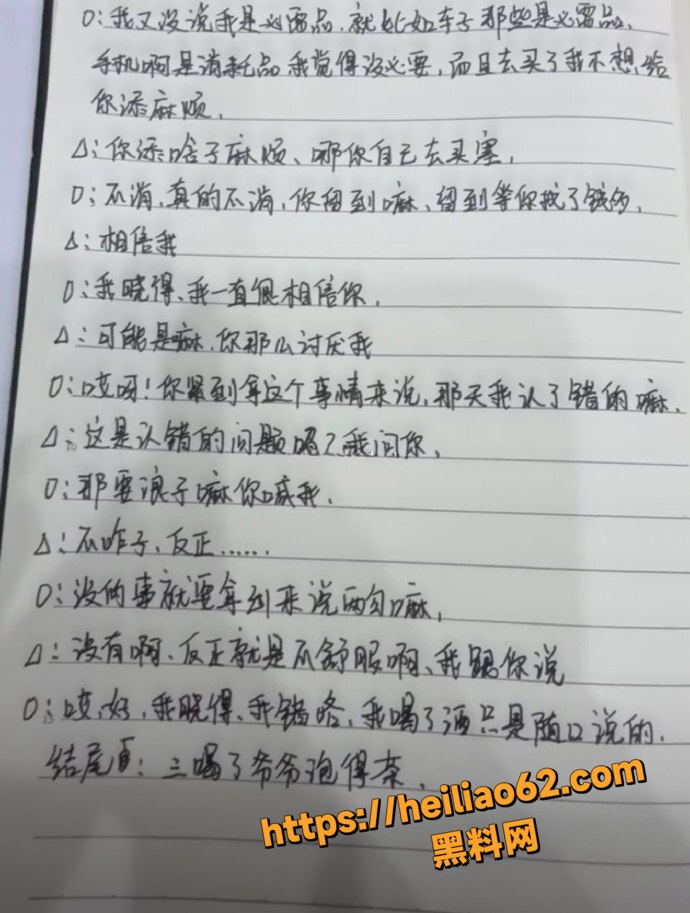 O:我又没说我是必需品,就比如车子那些是必需品,
手机啊是消耗品我觉得没必要,而且去买了我不想给
你添麻烦,
△:你添啥子麻烦、哪你自己去买塞,
O:不消,真的不消,你留到嘛、留到等你找了钱多,
△:相信我
O:我晓得、我一直很相信你,
△:可能是嘛,你那么讨厌我
O:哎呀!你紧到拿这个事情来说,那天我认了错的嘛,
△:这是认错的问题吗?我问你,
O:那要浪子嘛你喊我,
△:不咋子、反正……
O:没的事就要拿到来说两句嘛,
△:没有啊、反正就是不舒服啊、我跟你说
O:哎,好,我晓得、我错咯,我喝了酒只是随口说的,
结尾页:三喝了爷爷泡得茶,
https://heiliao62.com
黑料网